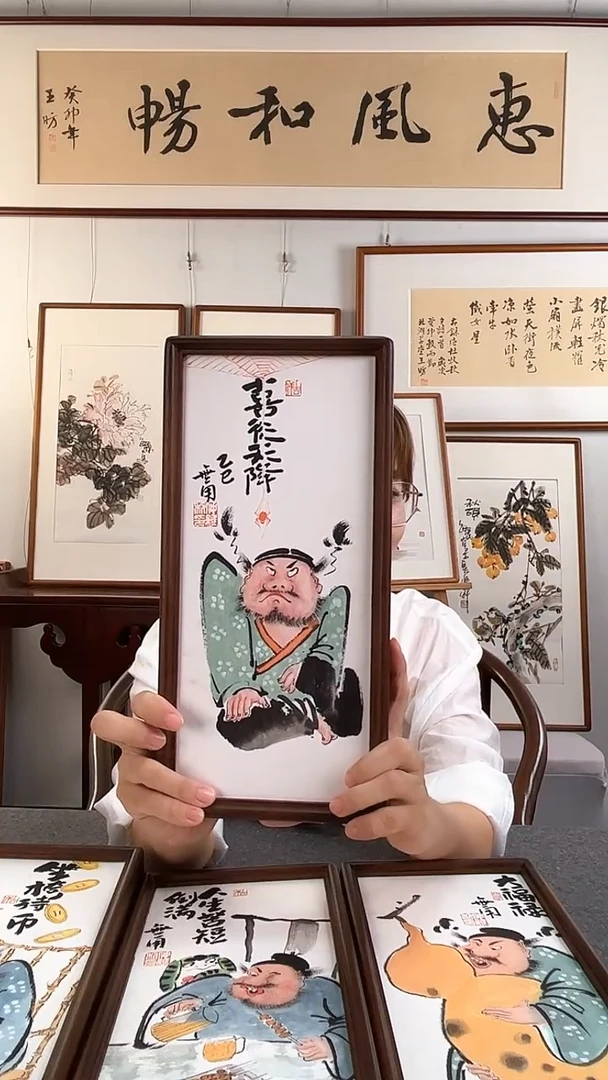 惠風和暢
癸卯年
王昉
銀燭秋光冷
畫屏輕羅
小扇撲流
螢天街夜色
涼如水卧看
牽牛
織女星
喜從天降
乙巳
無用
待币
人生苦短
倒满
無用
大福祿
無用